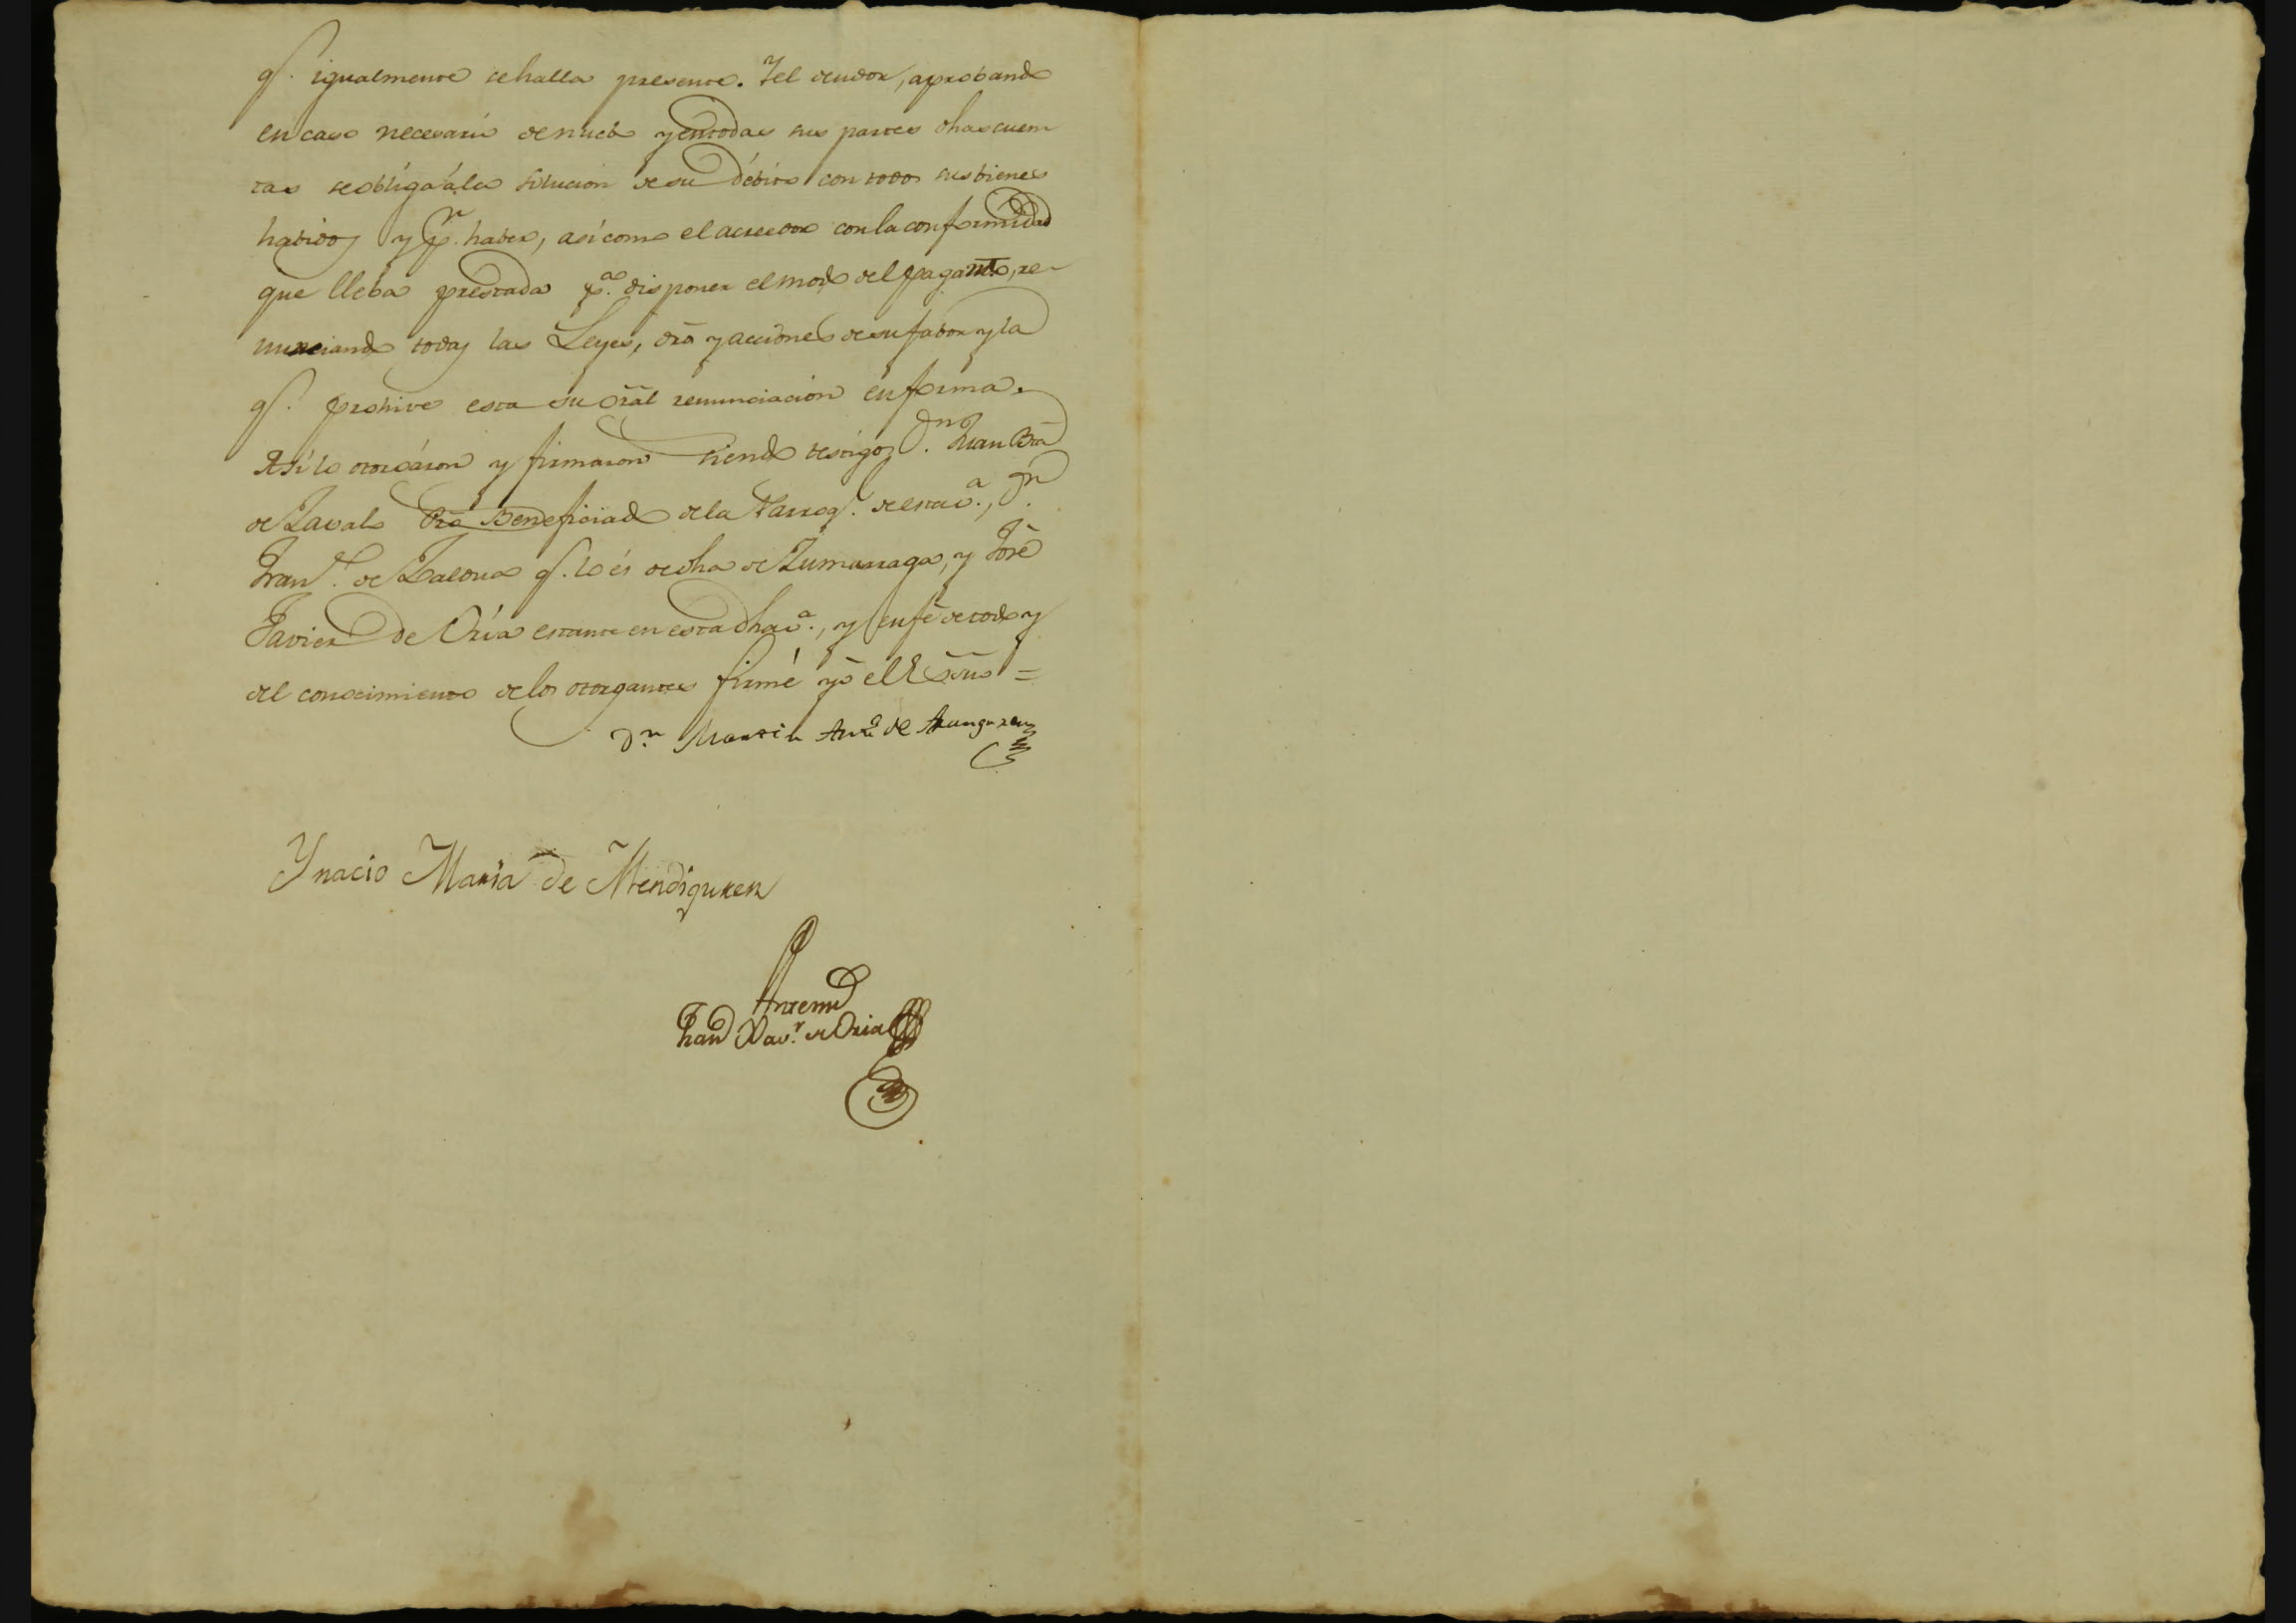 q.e igualmente se halla presente. Y el deudor, aprobando
en caso necesario de nuebo y en todas sus partes dhas cuen
tas se obliga á la solucion de su débito con todos sus bienes
habidos y p.r haber, así como el acreedor con la conformidad
que lleba prestada p.a disponer el modo del pagam.to, re-
nunciando todas las Leyes, dró y acciones de su fabor y la
q.e prohive esta su gral renunciacion en forma.
Así lo otorgáron y firmaron siendo testigos D.n Juan Bta
de Zavalo Pro Beneficiado de la Parroq.l de esta v.a, D.n
Fran.co de Zaldua q.e lo és de dha de Zumarraga, y José
Javier de Oria estante en esta dha v.a, y en fé de todo y
del conocimiento de los otorgantes firmé yo el Esno =
D.n Martin Ant.o de Aranguren
Ynacio Maria de Mendiguren
Antemi
Juan Xav.r de Oria